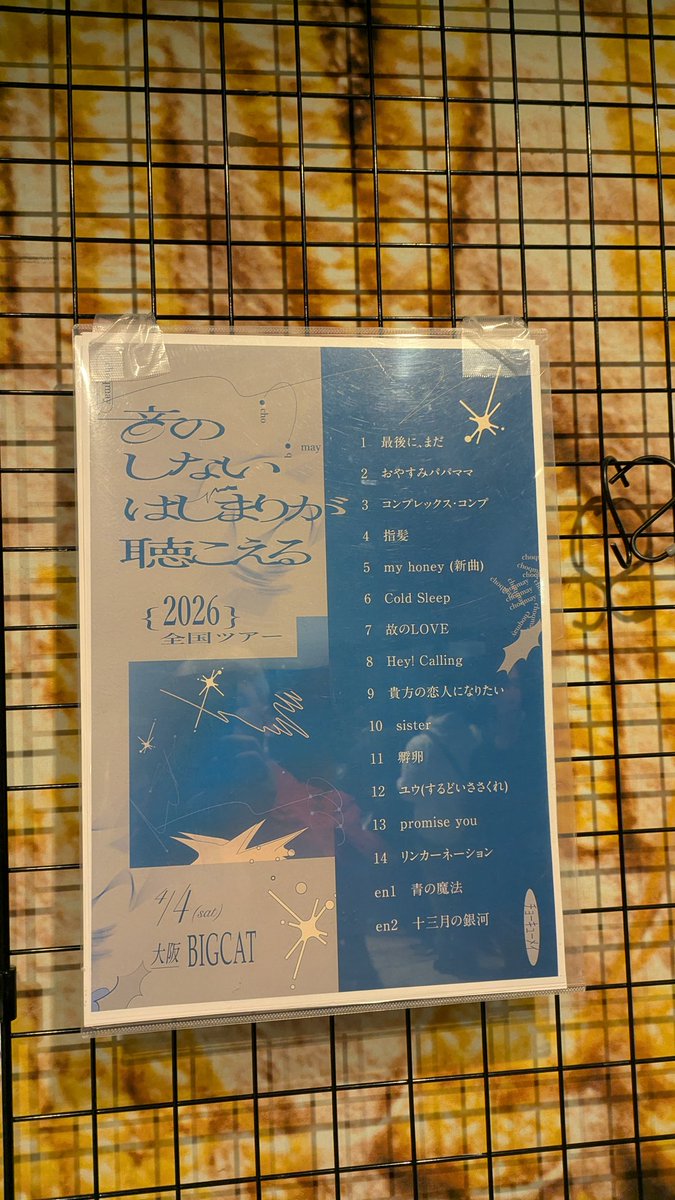 choqmay
cho
q
may
音の
しない
はじまりが
聴こえる
{2026}
全国ツアー
4/4 (sat)
大阪 BIGCAT
1 最後に、まだ
2 おやすみパパママ
3 コンプレックス・コンプ
4 指髪
5 my honey (新曲)
6 Cold Sleep
7 故のLOVE
8 Hey! Calling
9 貴方の恋人になりたい
10 sister
11 孵卵
12 ユウ(するどいささくれ)
13 promise you
14 リンカーネーション
en1 青の魔法
en2 十三月の銀河
choqmay
choqmay
choqmay
choqmay
choqmay
チョーキューメイ